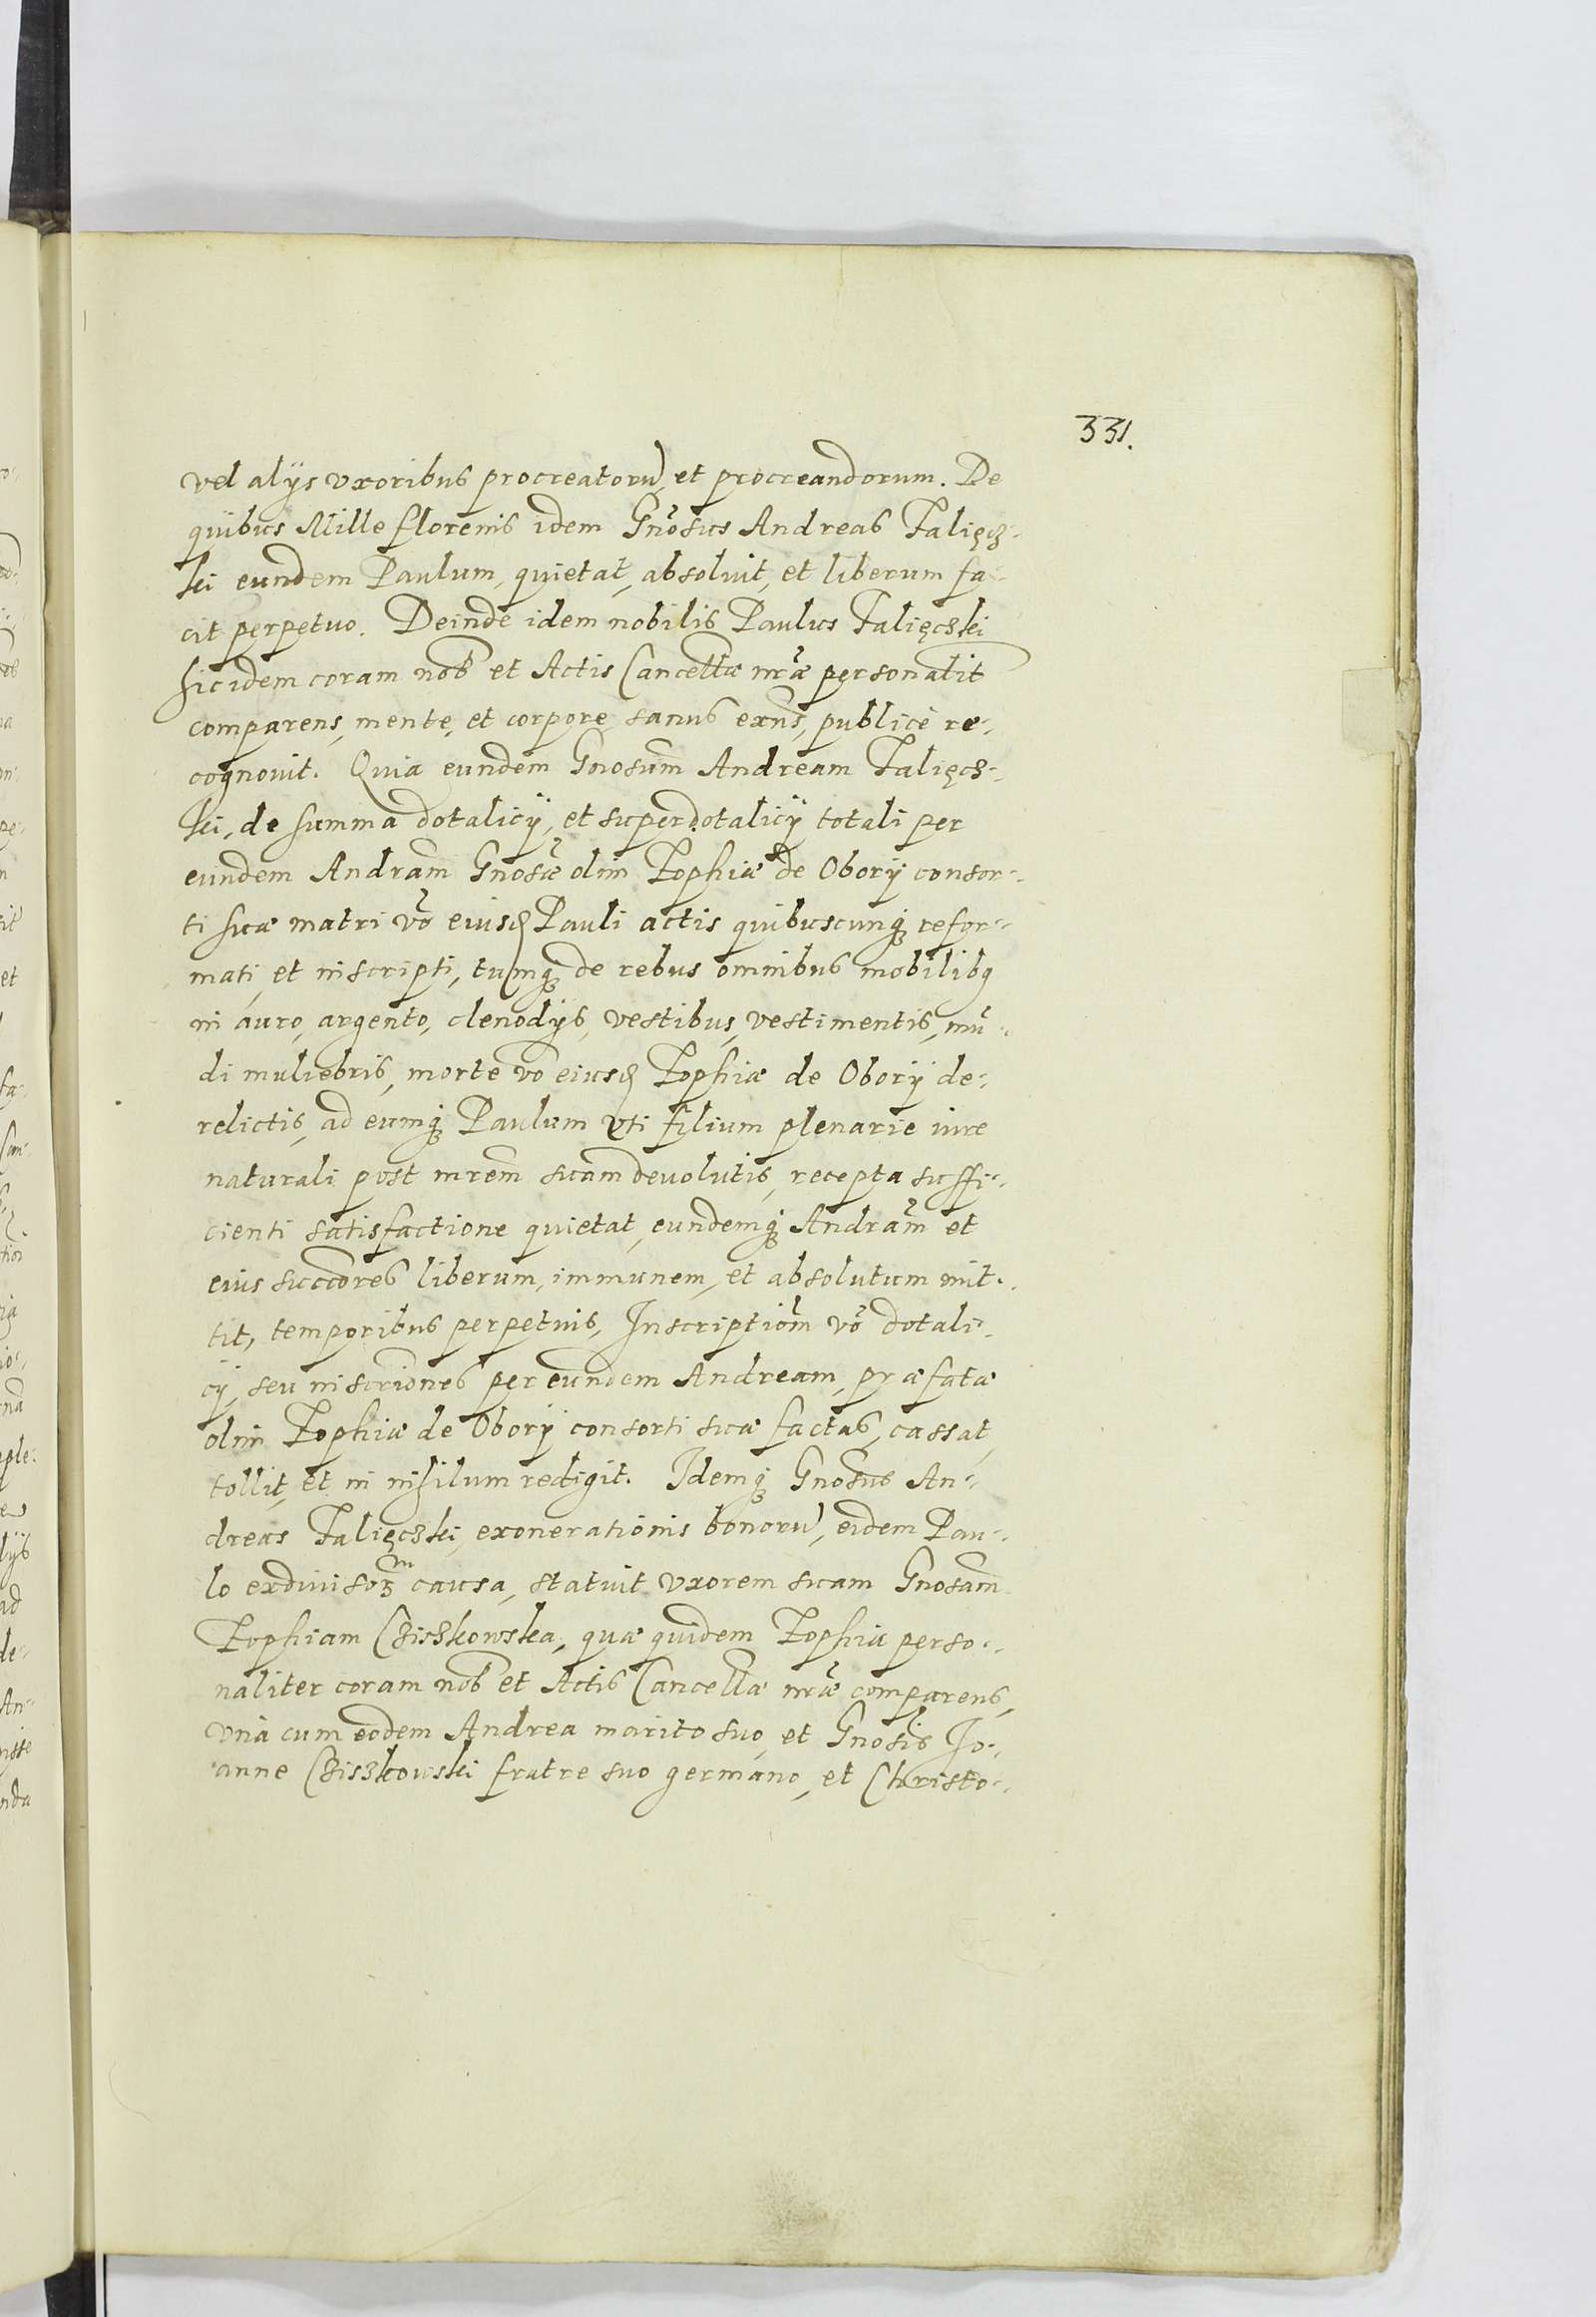 331.
vel alijs vxoribus procreatorū, et procreandorum. De
quibus Mille florenis idem Gnosus Andreas Falięcz-
ki eundem Paulum, quietat, absoluit, et liberum fa-
cit perpetuo. Deinde idem nobilis Paulus Falięczki
hic idem coram nob et Actis Cancellæ nræ personalit
comparens, mente, et corpore sanus exns, publicè re-
cognouit. Quia eundem Gnosum Andream Falięcz-
ki, de summa dotalicij, et superdotalicij totali per
eundem Andram Gnosæ olim Zophiæ de Obory consor-
ti suæ matri vo eiusd Pauli actis quibuscunq refor-
mati, et inscripti, tumq de rebus omnibus mobilibq
in auro, argento, clenodijs, vestibus, vestimentis, mū-
di muliebris, morte vo eiusd Zophiæ de Obory de-
relictis, ad eumq Paulum vti filium plenarie iure
naturali post mrem suam deuolutis, recepta suffi-
cienti satisfactione quietat, eundemq Andram et
eius succores liberum, immunem, et absolutum mit-
tit, temporibus perpetuis, Inscriptiom vo dotali-
cij, seu inscriones per eundem Andream, præfatæ
olim Zophiæ de Obory consorti suæ factas, cassat,
tollit, et in nihilum redigit. Idemq Gnosus An-
dreas Falięczki, exonerationis bonorū, eidem Pau-
lo exdiuisorm causa, statuit vxorem suam Gnosam
Zophiam Cziszkowska, quæ quidem Zophia perso-
naliter coram nob et Actis Cancellæ nræ comparens,
vnà cum eodem Andrea marito suo, et Gnosis Jo-
anne Cziszkowski fratre suo germano, et Christo-